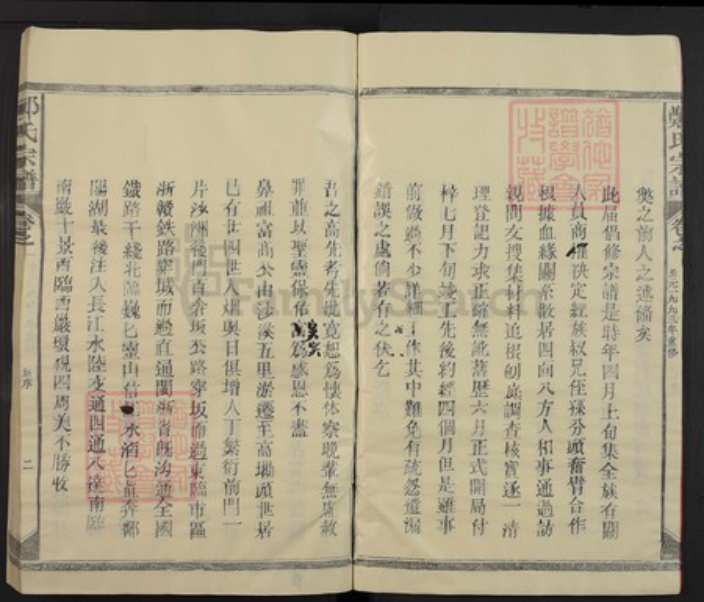 鄭氏宗譜
卷之
公元一九九三年重修
與之前人之述備矣
此屆倡修宗譜是時年四月上旬集全族有關
人員商榷決定經族权兄侄孫分頭奮臂合作
根據血緣關系散居四向八方人和事通過訪
親問友搜集材料追根刨底調查核實逐一清
理登記力求正確無訛善歷六月正式開局付
梓七月下旬竣工先後約經四個月但是雖事
前做過不少詳細工作其中難免有疏忽遺漏
錯誤之處倘若有之伏乞
吾之高先者先妣寬恕為懷体察晚輩無
罪並以聖靈保佑為感恩不盡
鼻祖富高公由沙溪五里淤遷至高墈頭世居
已有廿四世人烟與日俱增人丁繁衍前門一
片沙洲後門直介坂公路穿坂而過東臨市區
浙贛鉄路穿城而過直通閩浙省既沟通全國
鐵路干綫北臨巍匕靈山信水滔匕直奔鄱
陽湖最後注入長江水陸交通四通八達南臨
南巖十景西臨西巖環視四周美不勝收
鄭氏宗譜
卷之
新序
二